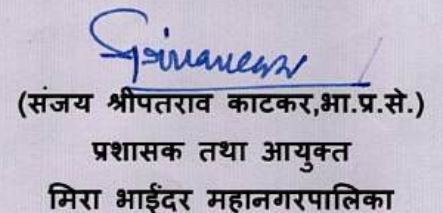 (संजय श्रीपतराव काटकर,भा.प्र.से.)
प्रशासक तथा आयुक्त
मिरा भाईंदर महानगरपालिका